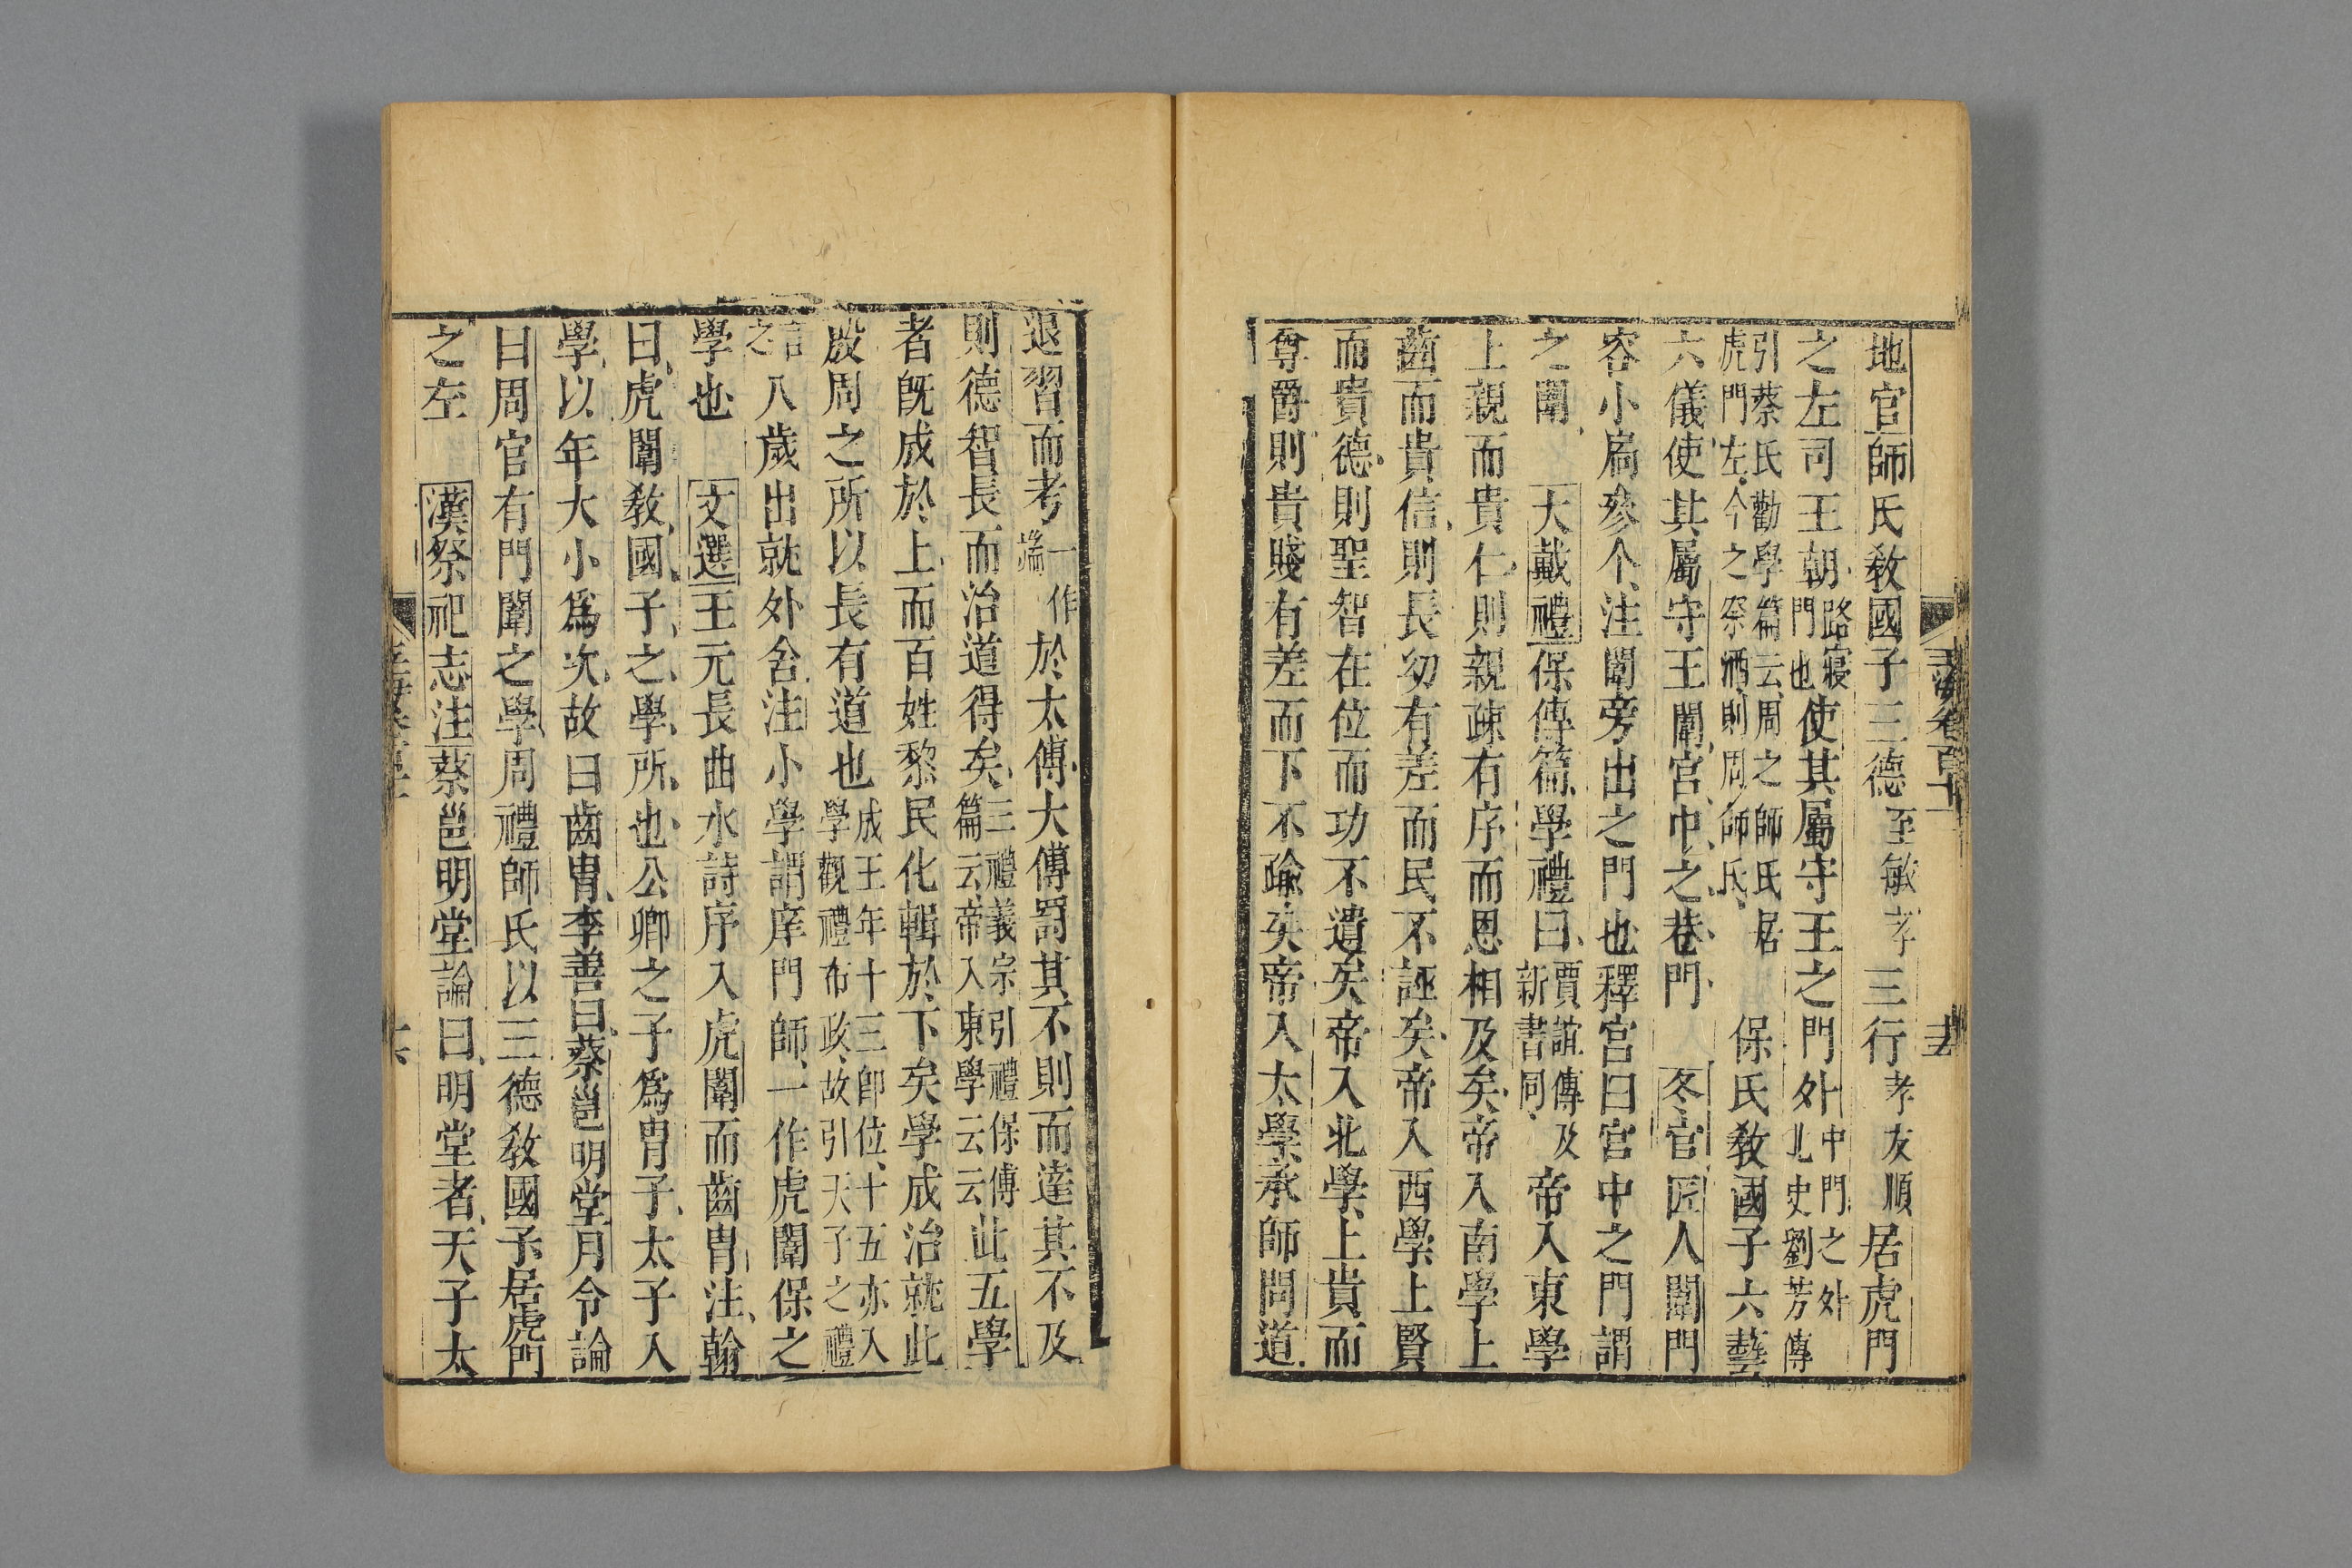 地官師氏敎國子三德至敏孝三行孝友順居虎門
之左司王朝路寢門也使其屬守王之門外中門之外北史劉芳傳
引蔡氏勸學篇云周之師氏居虎門左今之祭酒則周師氏保氏敎國子六藝
六儀使其屬守王闈宮中之巷門冬官匠人闈門
容小扃參个注闈旁出之門也釋宮曰宮中之門謂
之闈大戴禮保傅篇學禮曰賈誼傳及新書同帝入東學
上親而貴仁則親疎有序而恩相及矣帝入南學上
齒而貴信則長幼有差而民不誣矣帝入西學上賢
而貴德則聖智在位而功不遺矣帝入北學上貴而
尊爵則貴賤有差而下不踰矣帝入太學承師問道
退習而考一作端於太傅大傅罸其不則而達其不及
則德智長而治道得矣三禮義宗引禮保傅篇云帝入東學云云此五學
者旣成於上而百姓黎民化輯於下矣學成治就此
殷周之所以長有道也成王年十三卽位十五亦入學觀禮布政故引天子之禮
言之八歲出就外舍注小學謂庠門師一作虎闈保之
學也文選王元長曲水詩序入虎闈而齒胄注翰
曰虎闈敎國子之學所也公卿之子爲胄子太子入
學以年大小爲次故曰齒胄李善曰蔡邕明堂月令論
曰周官有門闈之學周禮師氏以三德敎國子居虎門
之左漢祭祀志注蔡邕明堂論曰明堂者天子太